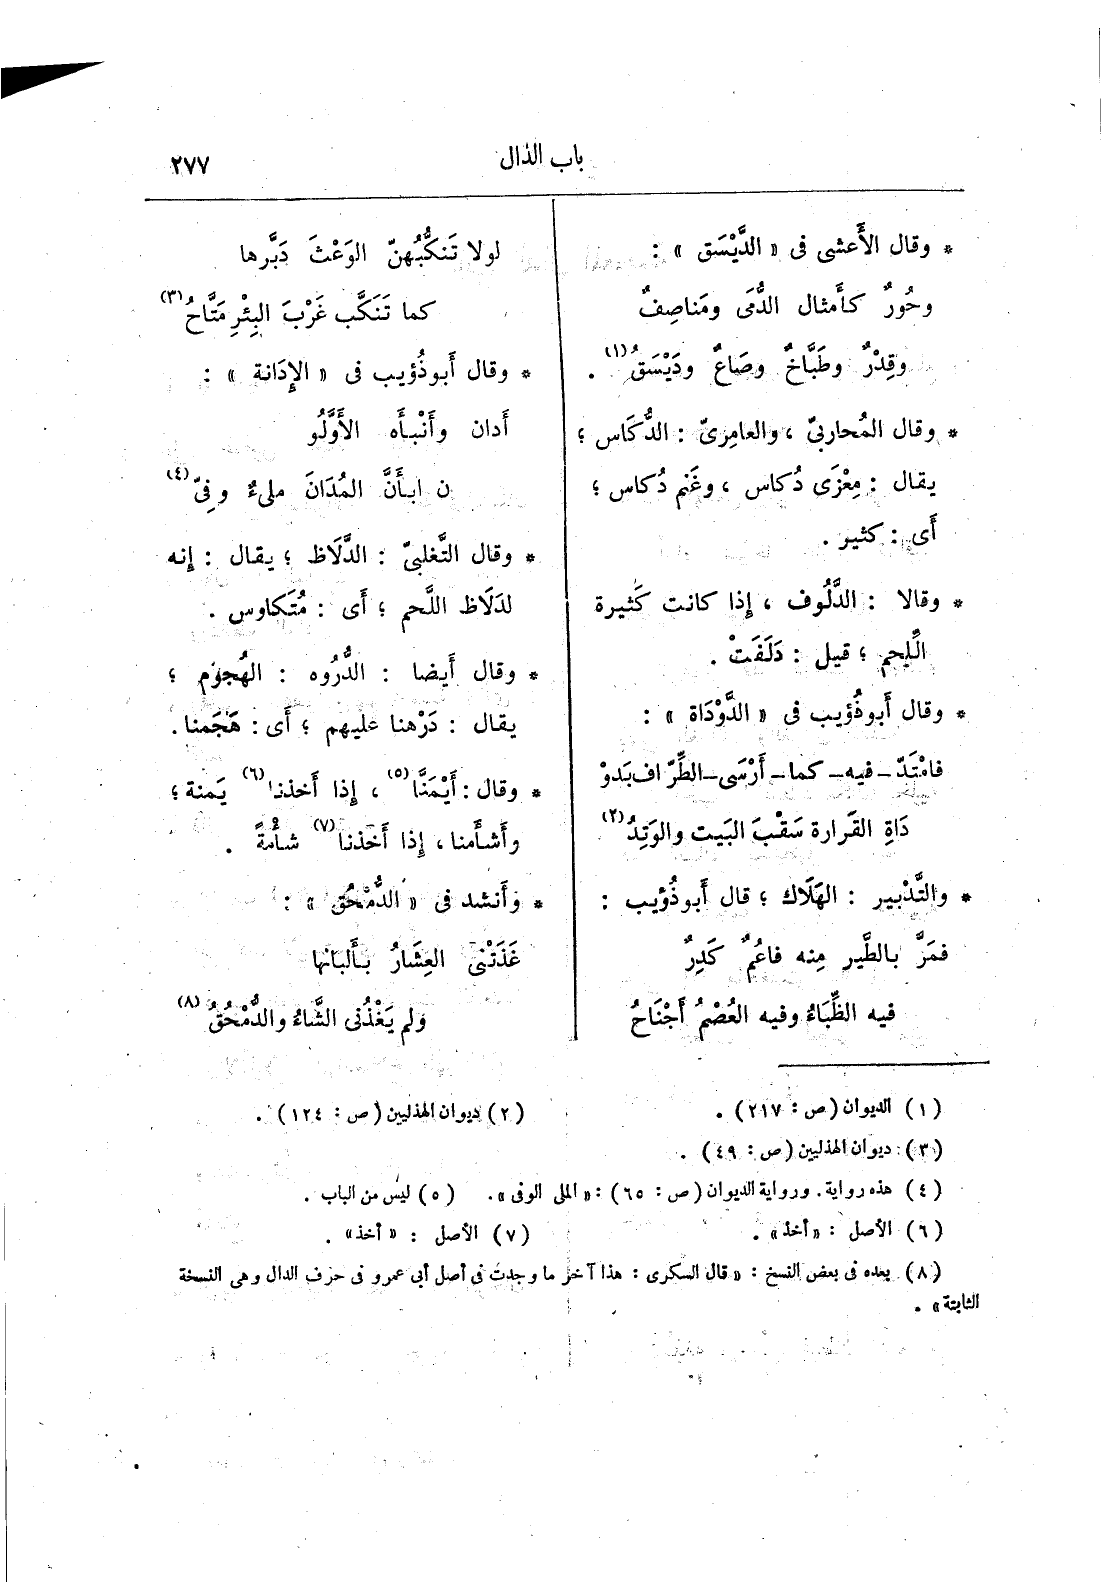 باب الذال
٢٧٧
* وقال الأَعشى فى « الدَّيْسَق » :
وحُورٌ كأَمثال الدُّمَى ومَناصِفٌ
وقِدْرٌ وطَبَّاخٌ وصَاعٌ ودَيْسَقُ(١) .
* وقال المُحاربىّ ، والعامِرىّ : الدُّكَاس ؛
يقال : مِعْزَى دُكاس ، وغَنم دُكاس ؛
أَى : كثير .
* وقالا : الدَّلُوف ، إِذا كانت كَثيرة
اللَّحِم ؛ قيل : دَلَفَتْ .
* وقال أَبوذُؤيب فى « الدَّوْدَاة » :
فامْتَدّ - فيه - كما - أَرْسَى - الطِّرّاف بَدو
دَاةِ القَرارة سَقْبَ البَيت والوَتِدُ(٢)
* والتَّدْبير : الهَلَاك ؛ قال أَبوذُؤيب :
فمَرَّ بالطَّير مِنه فاعُمٌ كَدِرٌ
فيه الظِّبَاءُ وفيه العُصْمُ أَجْنَاحُ
لولا تَنكُّبُهنّ الوَعْثَ دَبَّرها
كما تَنَكَّب غَرْبَ البِئْرِ مَتَّاحُ(٣)
* وقال أَبوذُؤيب فى « الإِدَانة » :
أَدان وأَنْبأَه الأَوَّلُو
ن ابأَنَّ المُدَانَ ملىءٌ وفِىّ(٤)
* وقال التَّغلبىّ : الدَّلَاظ ؛ يقال : إنه
لدَلَاظ اللَّحم ؛ أَى : مُتَكاوس .
* وقال أَيضا : الدُّرُوه : الهُجوُم ؛
يقال : دَرْهنا عليهم ؛ أَى : هَجَمنا .
* وقال : أَيْمَنَّا(٥) ، إِذا أَخذنا(٦) يَمنة ؛
وأَشأَمنا ، إِذا أَخَذنا(٧) شأْمةً .
* وأَنشد فى « الدُّمْحُق » :
غَذَتْنى العِشَارُ بأَلبانها
ولم يَغْذُنى الشَّاءُ والدُّمْحُقُ(٨)
(١) الديوان (ص : ٢١٧) .
(٢) ديوان الهذليين (ص : ١٢٤) .
(٣) ديوان الهذليين (ص : ٤٩) .
(٤) هذه رواية. ورواية الديوان (ص : ٦٥) : « الملى الوفى » .
(٥) ليس من الباب .
(٦) الأصل : « أخذ » .
(٧) الأصل : « أخذ » .
(٨) بعده فى بعض النسخ : « قال السكرى : هذا آخر ما وجدت فى أصل أبى عمرو فى حرف الدال وهى النسخة
الثابتة » .